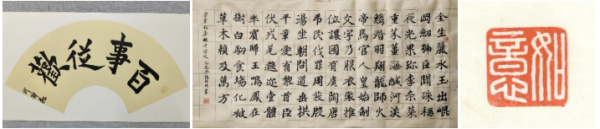 百事從歡
金生麗水玉出崐
岡劍號巨闕珠稱
夜光果珍李柰菜
重芥薑海鹹河淡
鱗潛羽翔龍師火
帝鳥官人皇始制
文字乃服衣裳推
位讓國有虞陶唐
弔民伐罪周發殷
湯坐朝問道垂拱
平章愛育黎首臣
伏戎羌遐邇壹體
率賓歸王鳴鳳在
樹白駒食場化被
草木賴及萬方
如意